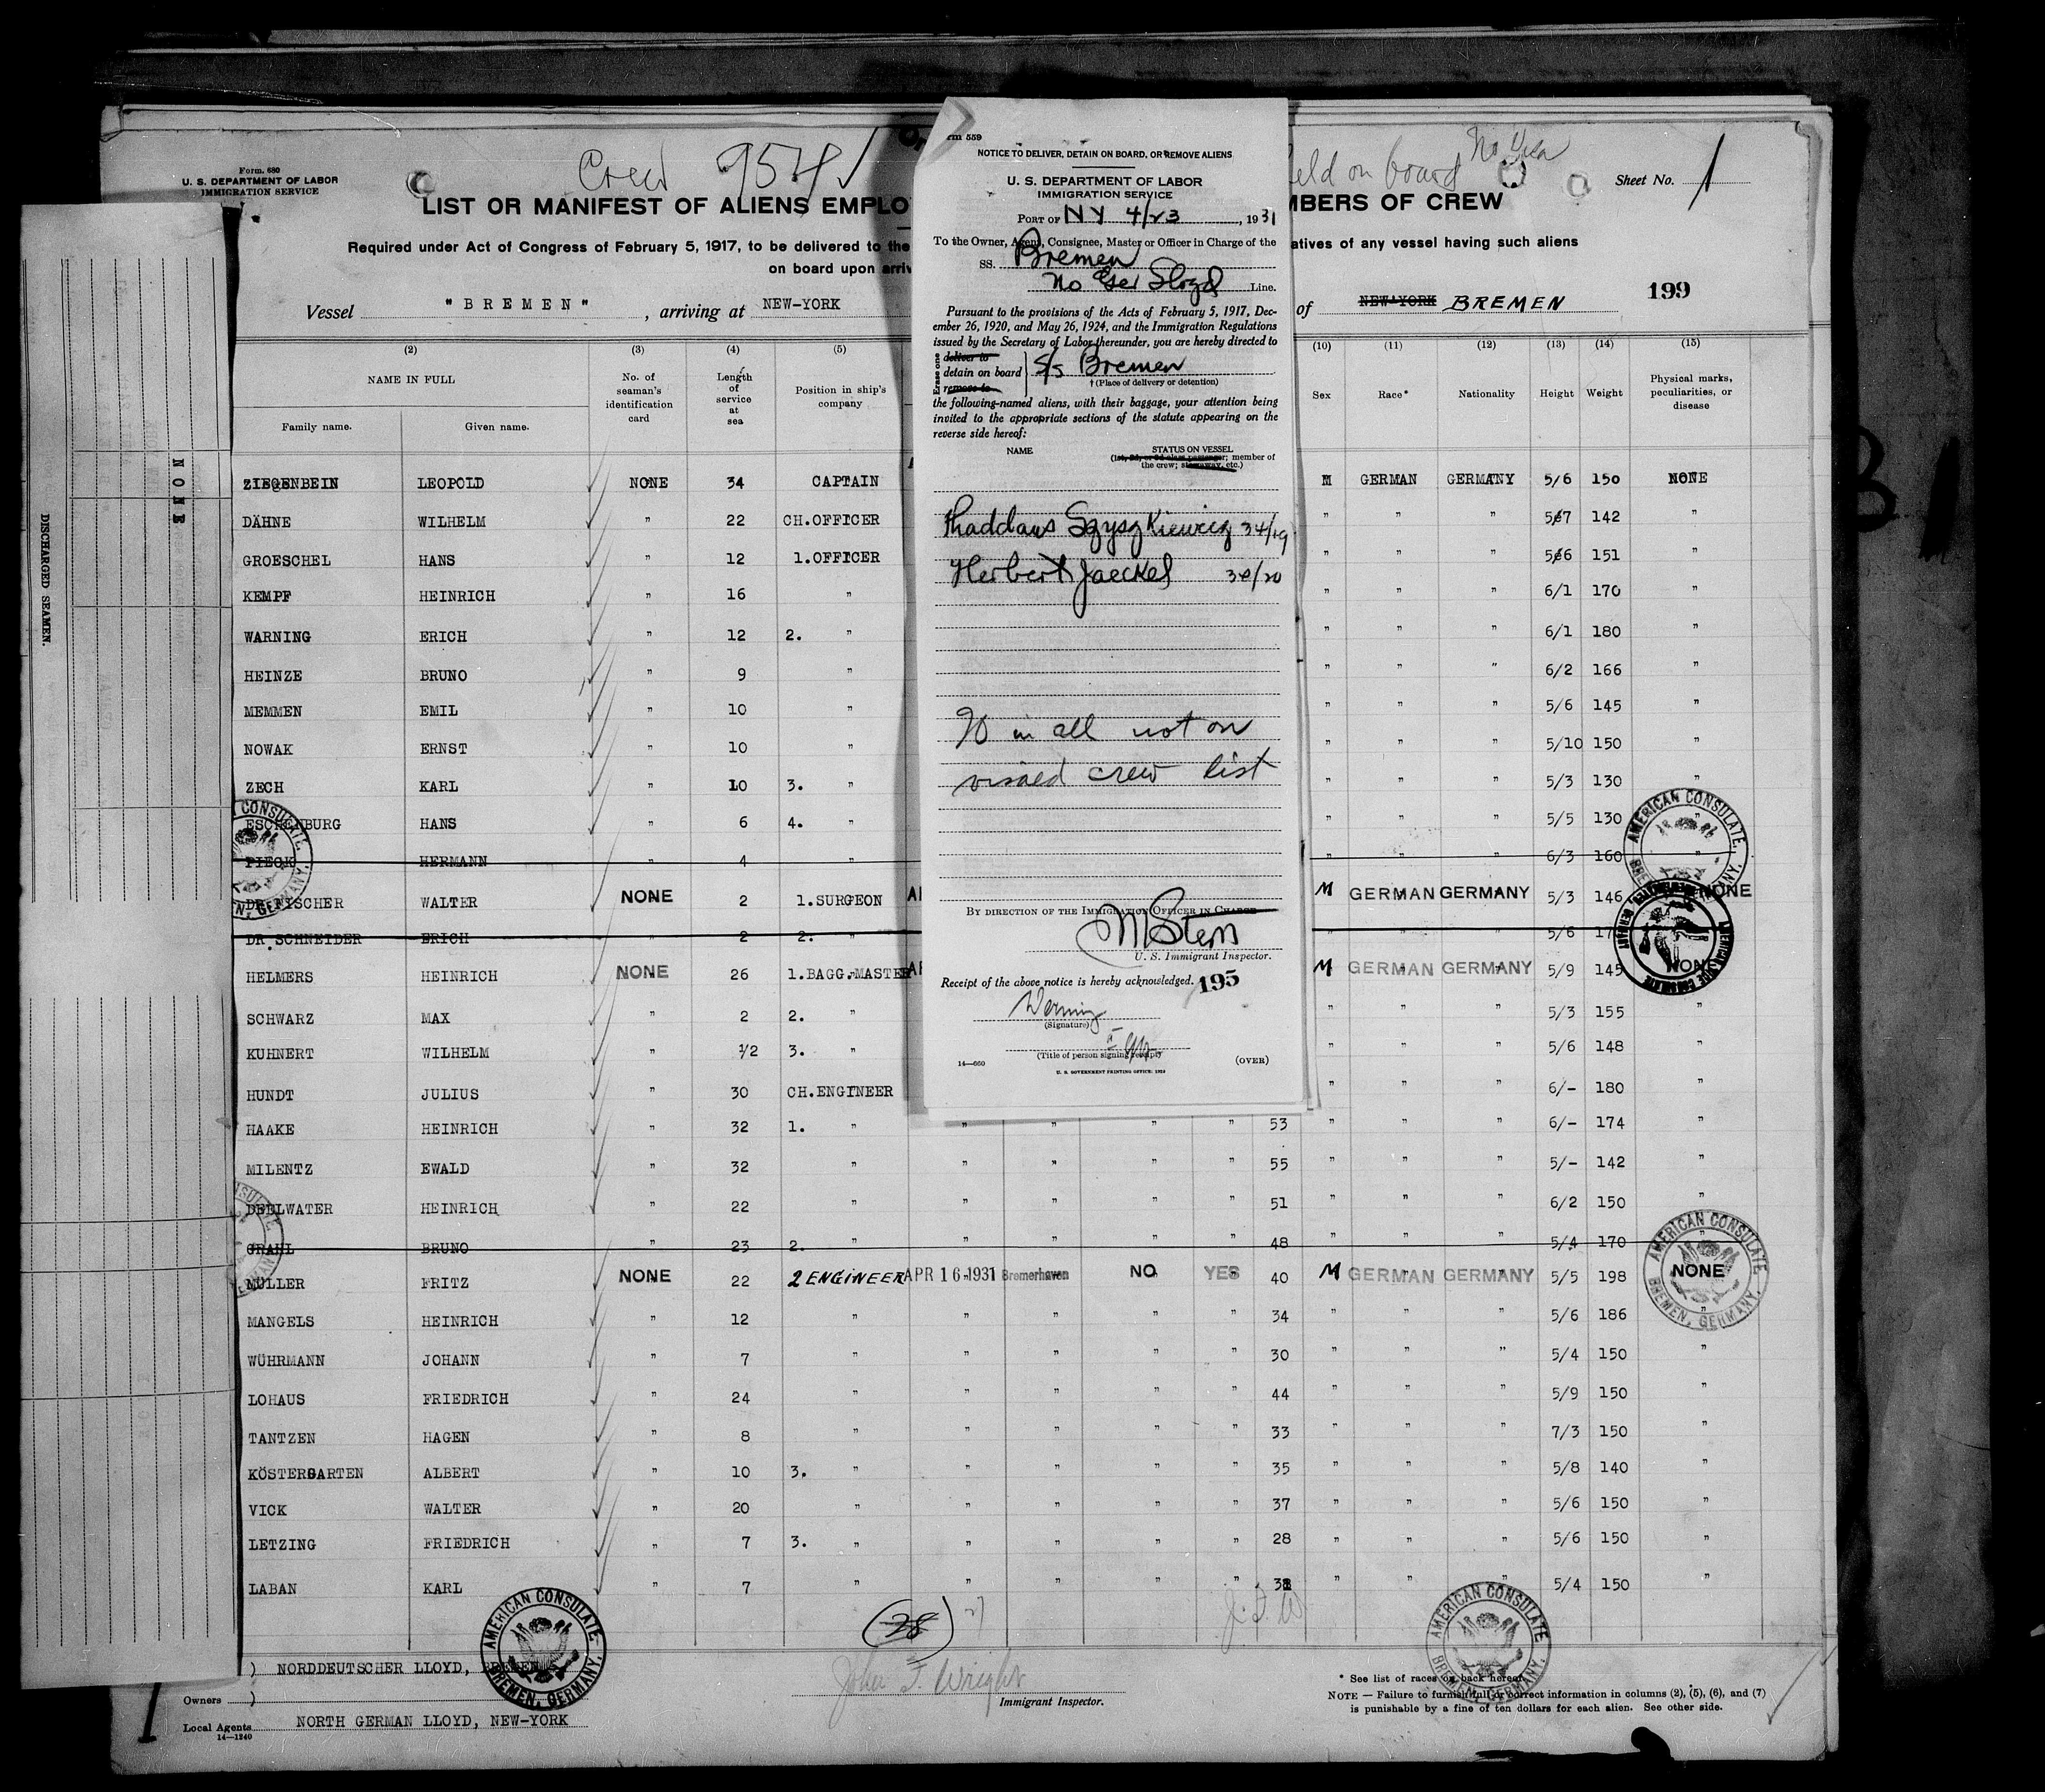 Form. 680
U. S. DEPARTMENT OF LABOR
IMMIGRATION SERVICE
Crew 954
held on board No Visa
Sheet No. 1
LIST OR MANIFEST OF ALIENS EMPLO
MBERS OF CREW
Required under Act of Congress of February 5, 1917, to be delivered to the
atives of any vessel having such aliens
on board upon arriv
Vessel "BREMEN", arriving at NEW-YORK
of NEW-YORK BREMEN
199
(2) (3) (4) (5) (10) (11) (12) (13) (14) (15)
NAME IN FULL
Family name. Given name.
No. of seaman's identification card
Length of service at sea
Position in ship's company
Sex Race* Nationality Height Weight Physical marks, peculiarities, or disease
ZIEGENBEIN LEOPOLD NONE 34 CAPTAIN M GERMAN GERMANY 5/6 150 NONE
DÄHNE WILHELM " 22 CH.OFFICER " " " 5/7 142 "
GROESCHEL HANS " 12 1.OFFICER " " " 5/6 151 "
KEMPF HEINRICH " 16 " " " " 6/1 170 "
WARNING ERICH " 12 2. " " " " 6/1 180 "
HEINZE BRUNO " 9 " " " " 6/2 166 "
MEMMEN EMIL " 10 " " " " 5/6 145 "
NOWAK ERNST " 10 " " " " 5/10 150 "
ZECH KARL " 10 3. " " " " 5/3 130 "
ESCHENBURG HANS " 6 4. " " " " 5/5 130 "
PIECK HERMANN " 4 " " " " 6/3 160 "
DR. FISCHER WALTER NONE 2 1.SURGEON M GERMAN GERMANY 5/3 146 NONE
DR. SCHNEIDER ERICH " 2 2. " " " " 5/6
HELMERS HEINRICH NONE 26 1.BAGG.MASTER M GERMAN GERMANY 5/9 145 NONE
SCHWARZ MAX " 2 2. " " " " 5/3 155 "
KUHNERT WILHELM " 1/2 3. " " " " 5/6 148 "
HUNDT JULIUS " 30 CH.ENGINEER " " " 6/- 180 "
HAAKE HEINRICH " 32 1. " " " " " 53 " " " 6/- 174 "
MILENTZ EWALD " 32 " " " " " 55 " " " 5/- 142 "
DEELWATER HEINRICH " 22 " " " " " 51 " " " 6/2 150 "
GRAHL BRUNO " 23 2. " " " " " 48 " " " 5/4 170 "
MÜLLER FRITZ NONE 22 2 ENGINEER APR 16 1931 Bremerhaven NO YES 40 M GERMAN GERMANY 5/5 198 NONE
MANGELS HEINRICH " 12 " " " " " 34 " " " 5/6 186 "
WÜHRMANN JOHANN " 7 " " " " " 30 " " " 5/4 150 "
LOHAUS FRIEDRICH " 24 " " " " " 44 " " " 5/9 150 "
TANTZEN HAGEN " 8 " " " " " 33 " " " 7/3 150 "
KÖSTERGARTEN ALBERT " 10 3. " " " " " 35 " " " 5/8 140 "
VICK WALTER " 20 " " " " " 37 " " " 5/6 150 "
LETZING FRIEDRICH " 7 3. " " " " " 28 " " " 5/6 150 "
LABAN KARL " 7 " " " " " " " " 5/4 150 "
(28) 27
J. F. W
NORDDEUTSCHER LLOYD, BREMEN
Owners
Local Agents NORTH GERMAN LLOYD, NEW-YORK
14—1240
John F. Wright
Immigrant Inspector.
* See list of races on back hereof.
NOTE — Failure to furnish full or correct information in columns (2), (5), (6), and (7)
is punishable by a fine of ten dollars for each alien. See other side.
AMERICAN CONSULATE, BREMEN, GERMANY.
AMERICAN CONSULATE, BREMEN, GERMANY.
AMERICAN CONSULATE BREMEN, GERMANY.
AMERICAN CONSULATE BREMEN, GERMANY.
rm 559
NOTICE TO DELIVER, DETAIN ON BOARD, OR REMOVE ALIENS
U. S. DEPARTMENT OF LABOR
IMMIGRATION SERVICE
PORT OF NY 4/23, 1931
To the Owner, Agent, Consignee, Master or Officer in Charge of the
SS. Bremen
No Ger Lloyd Line.
Pursuant to the provisions of the Acts of February 5, 1917, Dec-
ember 26, 1920, and May 26, 1924, and the Immigration Regulations
issued by the Secretary of Labor thereunder, you are hereby directed to
Erase one
deliver to
detain on board S/S Bremen
remove to † (Place of delivery or detention)
the following-named aliens, with their baggage, your attention being
invited to the appropriate sections of the statute appearing on the
reverse side hereof:
NAME STATUS ON VESSEL
(1st, 2d, or 3d class passenger; member of
the crew; stowaway, etc.)
Thaddaus Szyszkiewicz 34/19
Herbert Jaeckel 30/20
in all not on
visaed crew list
BY DIRECTION OF THE IMMIGRATION OFFICER IN CHARGE
M Stern
U. S. Immigrant Inspector.
Receipt of the above notice is hereby acknowledged. 195
Warning
(Signature)
(Title of person signing receipt)
14—660 (OVER)
U. S. GOVERNMENT PRINTING OFFICE: 1929
NONE
DISCHARGED SEAMEN.